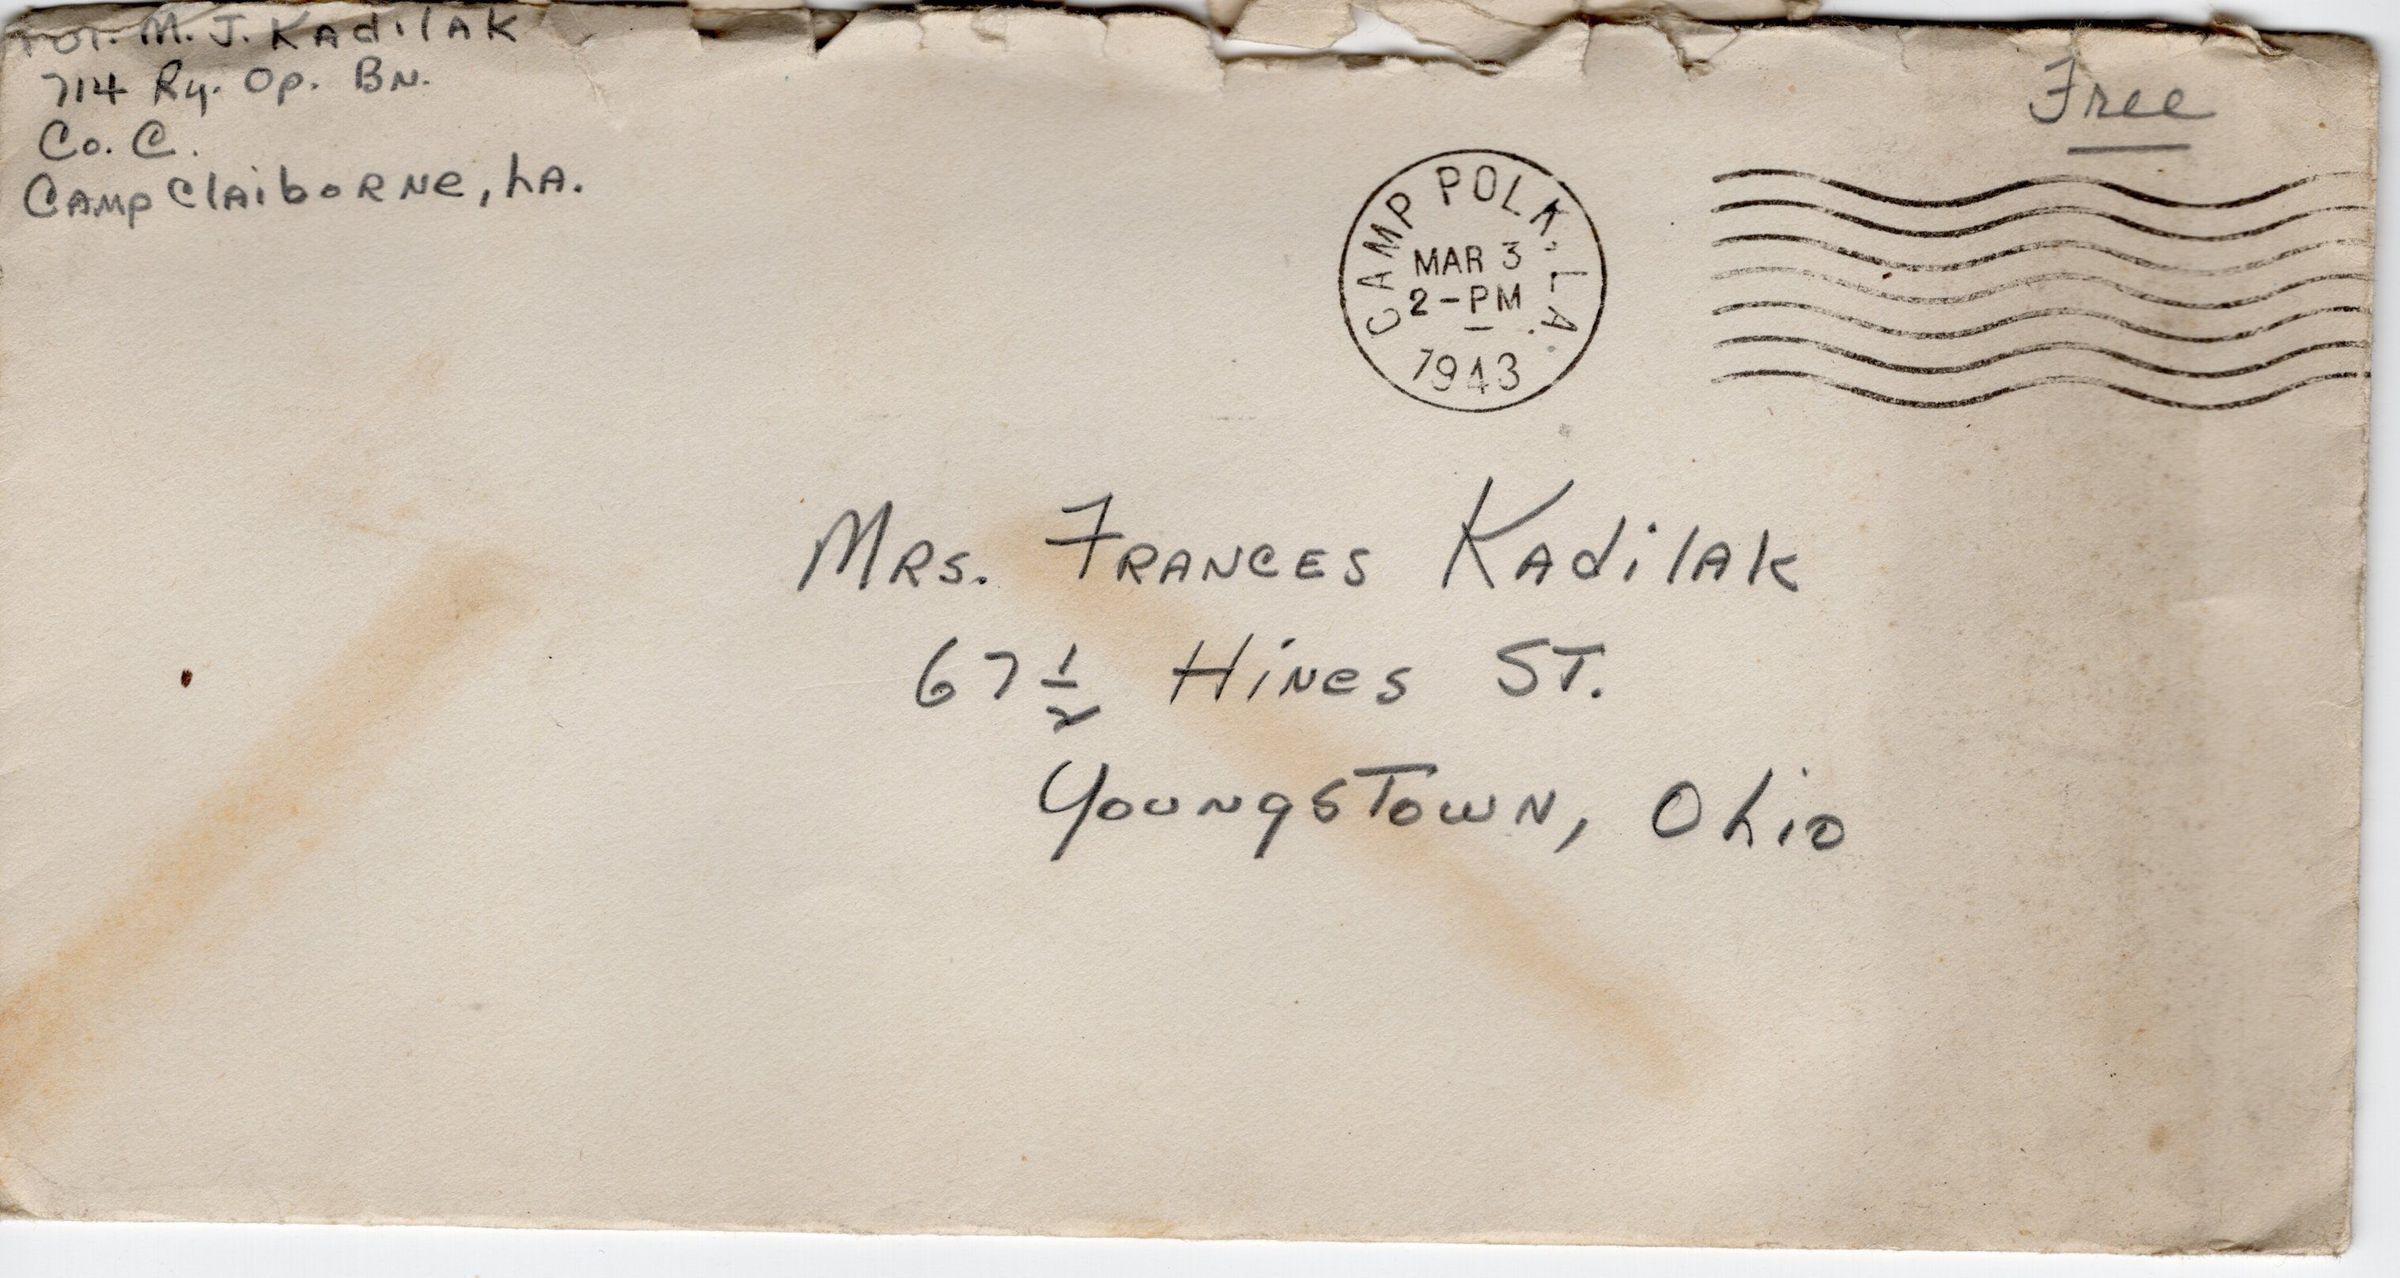 M. J. Kadilak
714 Ry. Op. Bn.
Co. C.
Camp Claiborne, La.
Free
CAMP POLK, LA.
MAR 3
2-PM
1943
Mrs. Frances Kadilak
67 1/2 Hines St.
Youngstown, Ohio